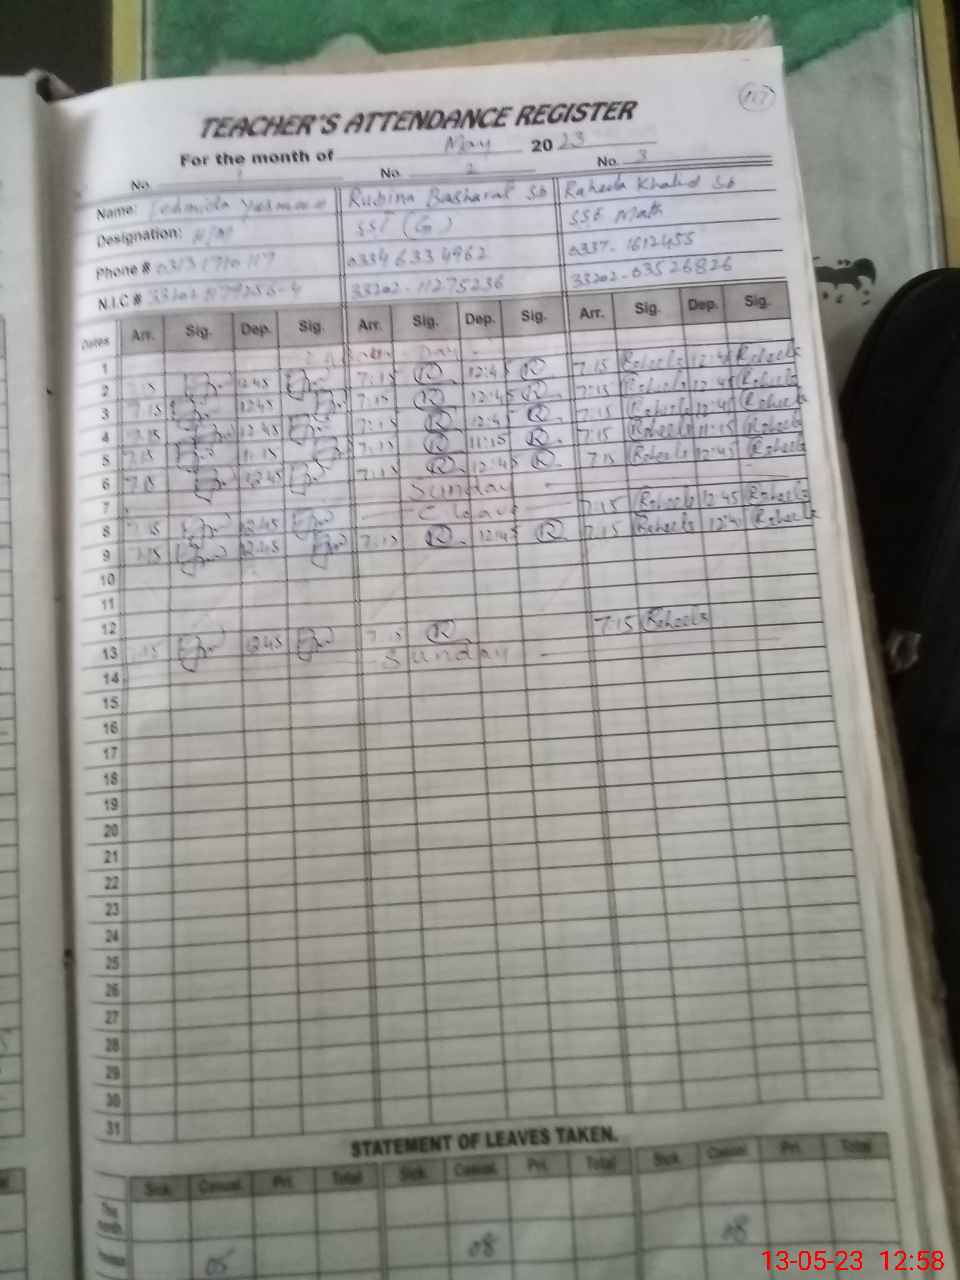 117
TEACHER'S ATTENDANCE REGISTER
For the month of May 2023
No. 1 No. 2 No. 3
Name: Rubina Basharat Sb Raheela Khalid Sb
Designation: H/M SST (G) SSE Math
Phone # 0334 633 4962 0337-1612455
N.I.C # 33202-11275236 33202-03526826
Dates Arr. Sig. Dep. Sig. Arr. Sig. Dep. Sig. Arr. Sig. Dep. Sig.
1 Day
2 7:15 12:45 7:15 R 12:45 R 7:15 Raheela 12:45 Raheela
3 7:15 1245 7:15 R 12:45 R 7:15 Raheela 12:45 Raheela
4 7:15 12:45 7:15 R 12:45 R 7:15 Raheela 12:45 Raheela
5 7:15 11:15 7:15 R 11:15 R 7:15 Raheela 11:15 Raheela
6 7:15 12:45 7:15 R 12:45 R 7:15 Raheela 12:45 Raheela
7 Sunday
8 7:15 12:45 C leave 7:15 Raheela 12:45 Raheela
9 7:15 12:45 7:15 R 12:45 R 7:15 Raheela 12:45 Raheela
10
11
12
13 7:15 1245 7:15 R 7:15 Raheela
14 Sunday
15
16
17
18
19
20
21
22
23
24
25
26
27
28
29
30
31
STATEMENT OF LEAVES TAKEN.
Sick Casual Pri. Total Sick Casual Pri. Total Sick Casual Pri. Total
This month
05 08 08
13-05-23 12:58